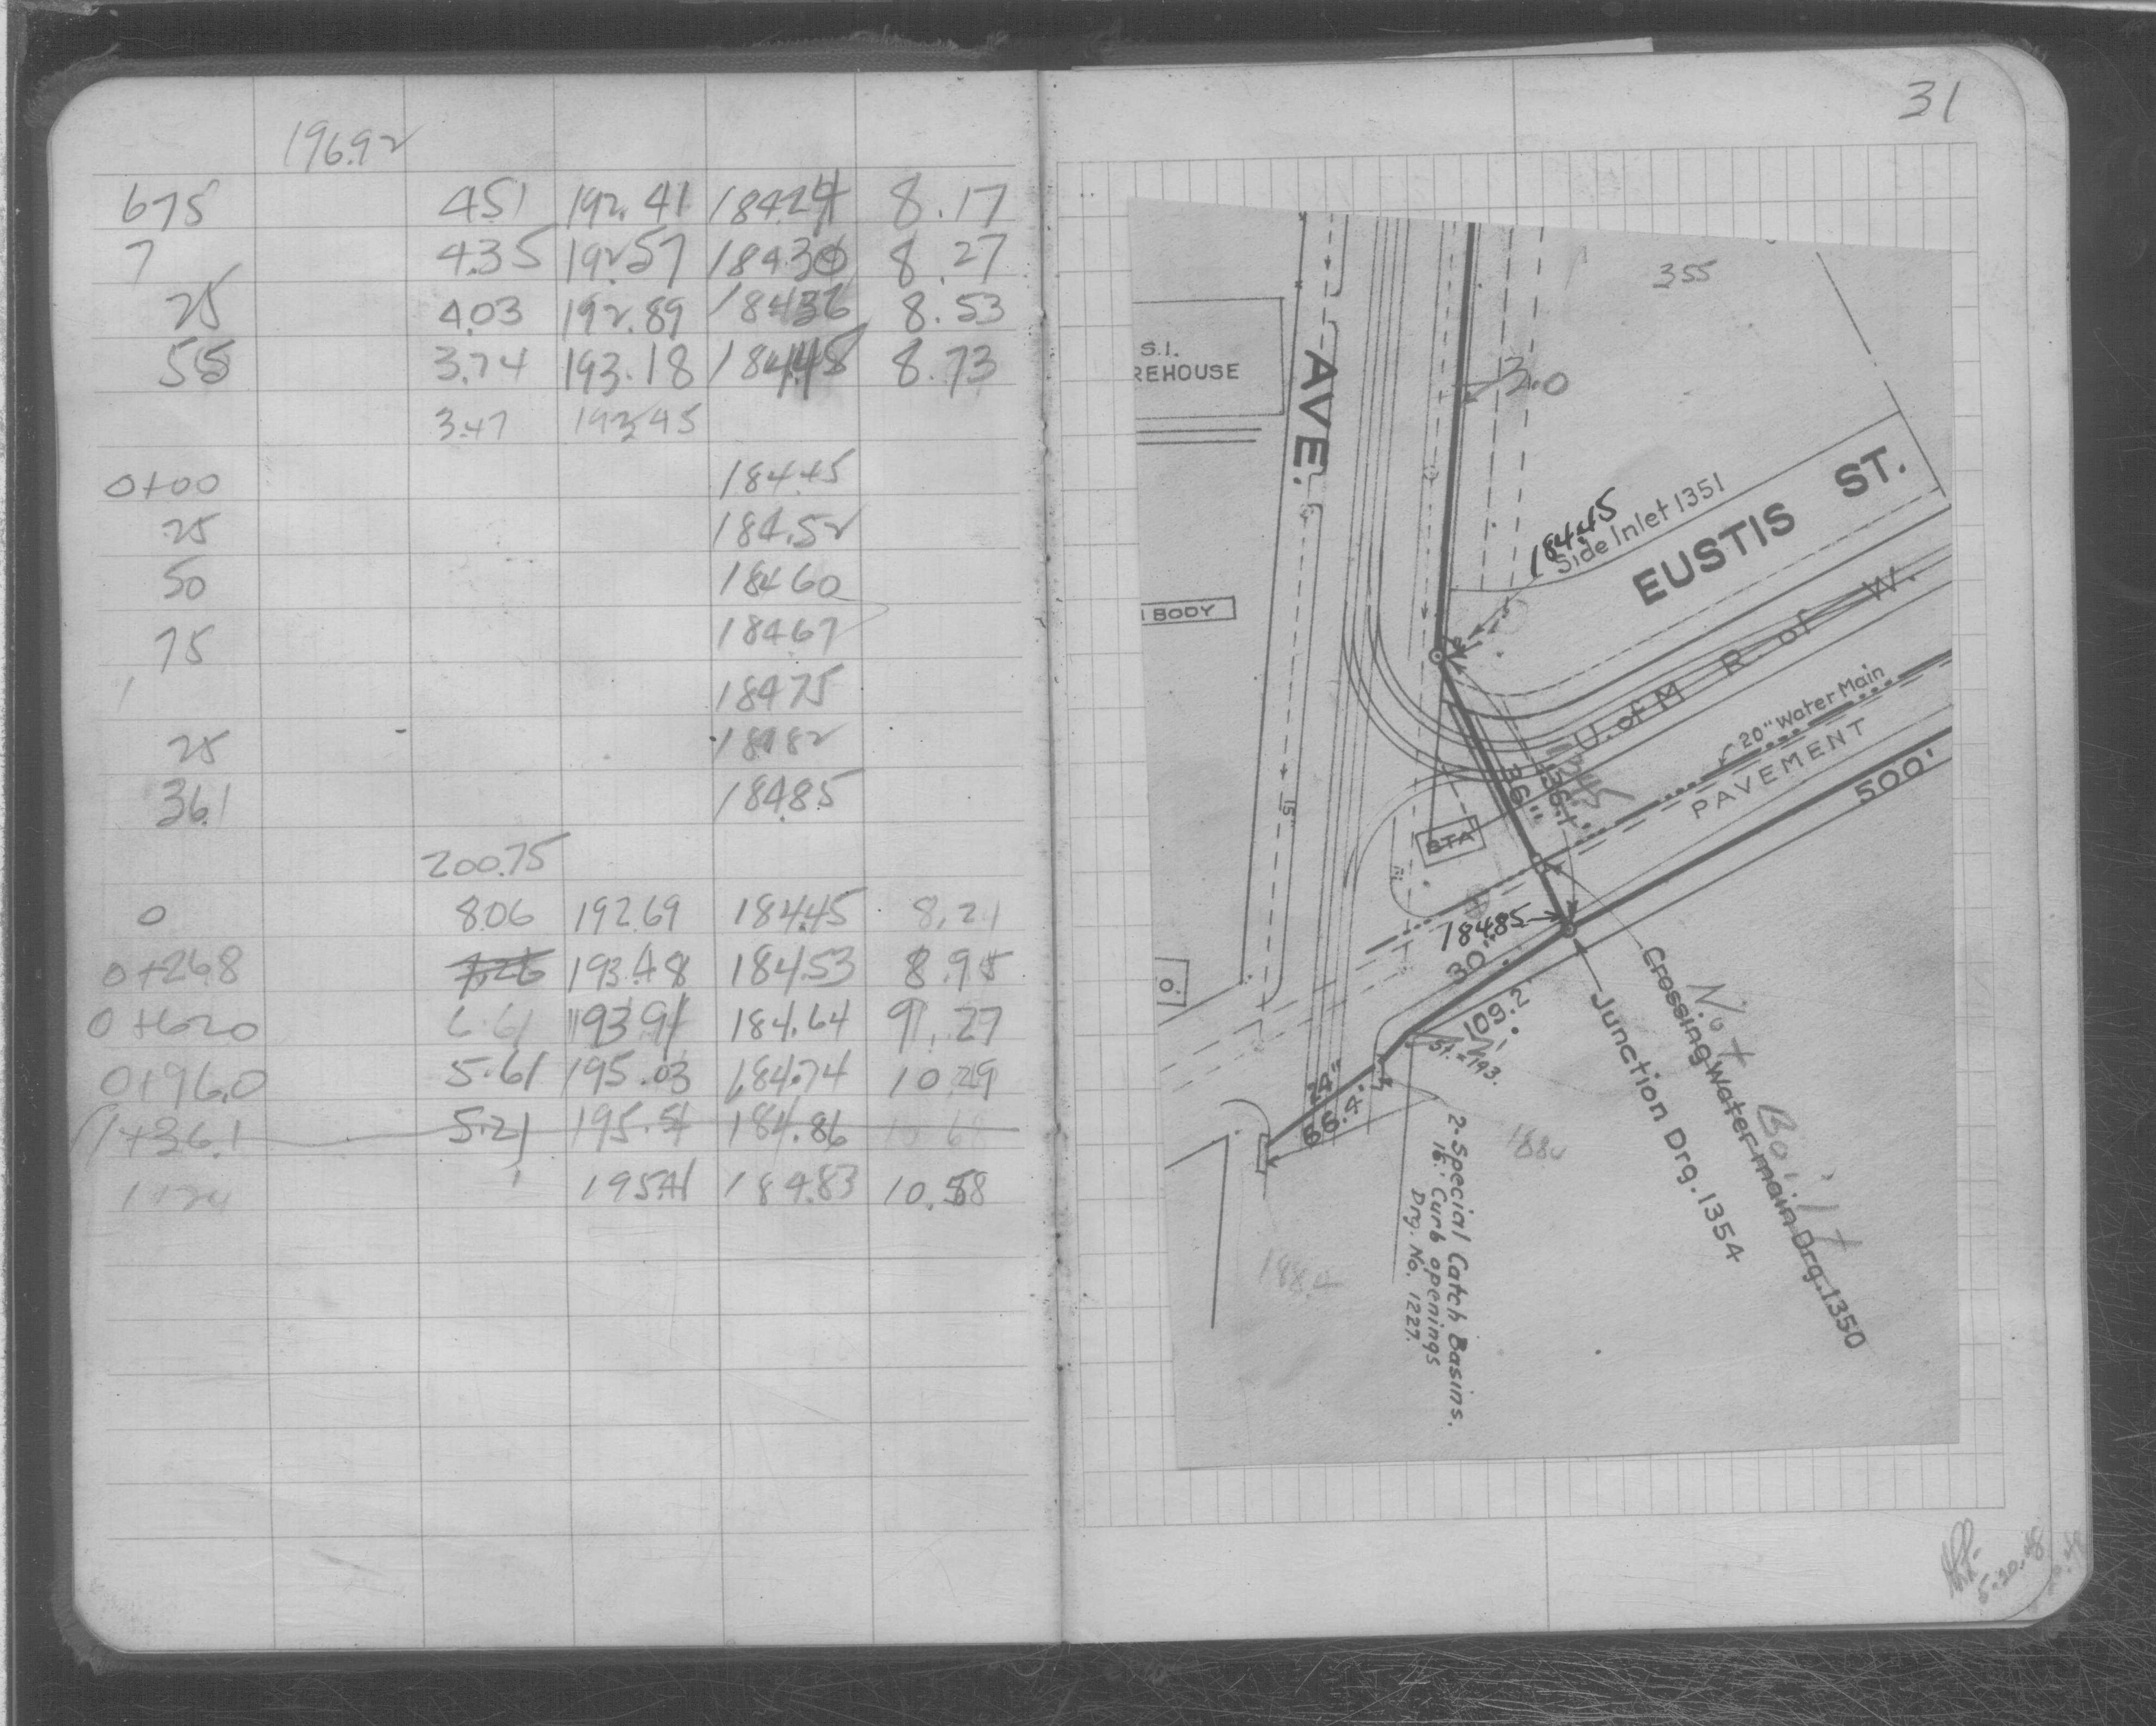 196.92
675 4.51 192.41 184.24 8.17
7 4.35 192.57 184.30 8.27
25 4.03 192.89 184.36 8.53
55 3.74 193.18 184.45 8.73
3.47 193.45
0+00 184.45
25 184.52
50 184.60
75 184.67
1 184.75
25 184.82
36.1 184.85
200.75
0 8.06 192.69 184.45 8.24
0+26.8 7.26 193.48 184.53 8.95
0+62.0 6.61 193.91 184.64 9.27
0+96.0 5.61 195.03 184.74 10.29
1+36.1 5.21 195.54 184.86 10.68
1+24 195.41 184.83 10.58
31
355
S.I.
REHOUSE
AVE.
3.0
184.45
Side Inlet 1351
EUSTIS ST.
BODY
U. of M R. of W.
20" Water Main
PAVEMENT
500'
15"
36"
STA
184.85
30"
109.2'
St. = 193.
24"
66.4'
Not Built
Crossing Water main Drg. 1350
Junction Drg. 1354
2-Special Catch Basins.
16' Curb openings
Drg. No. 1227.
5-20-48